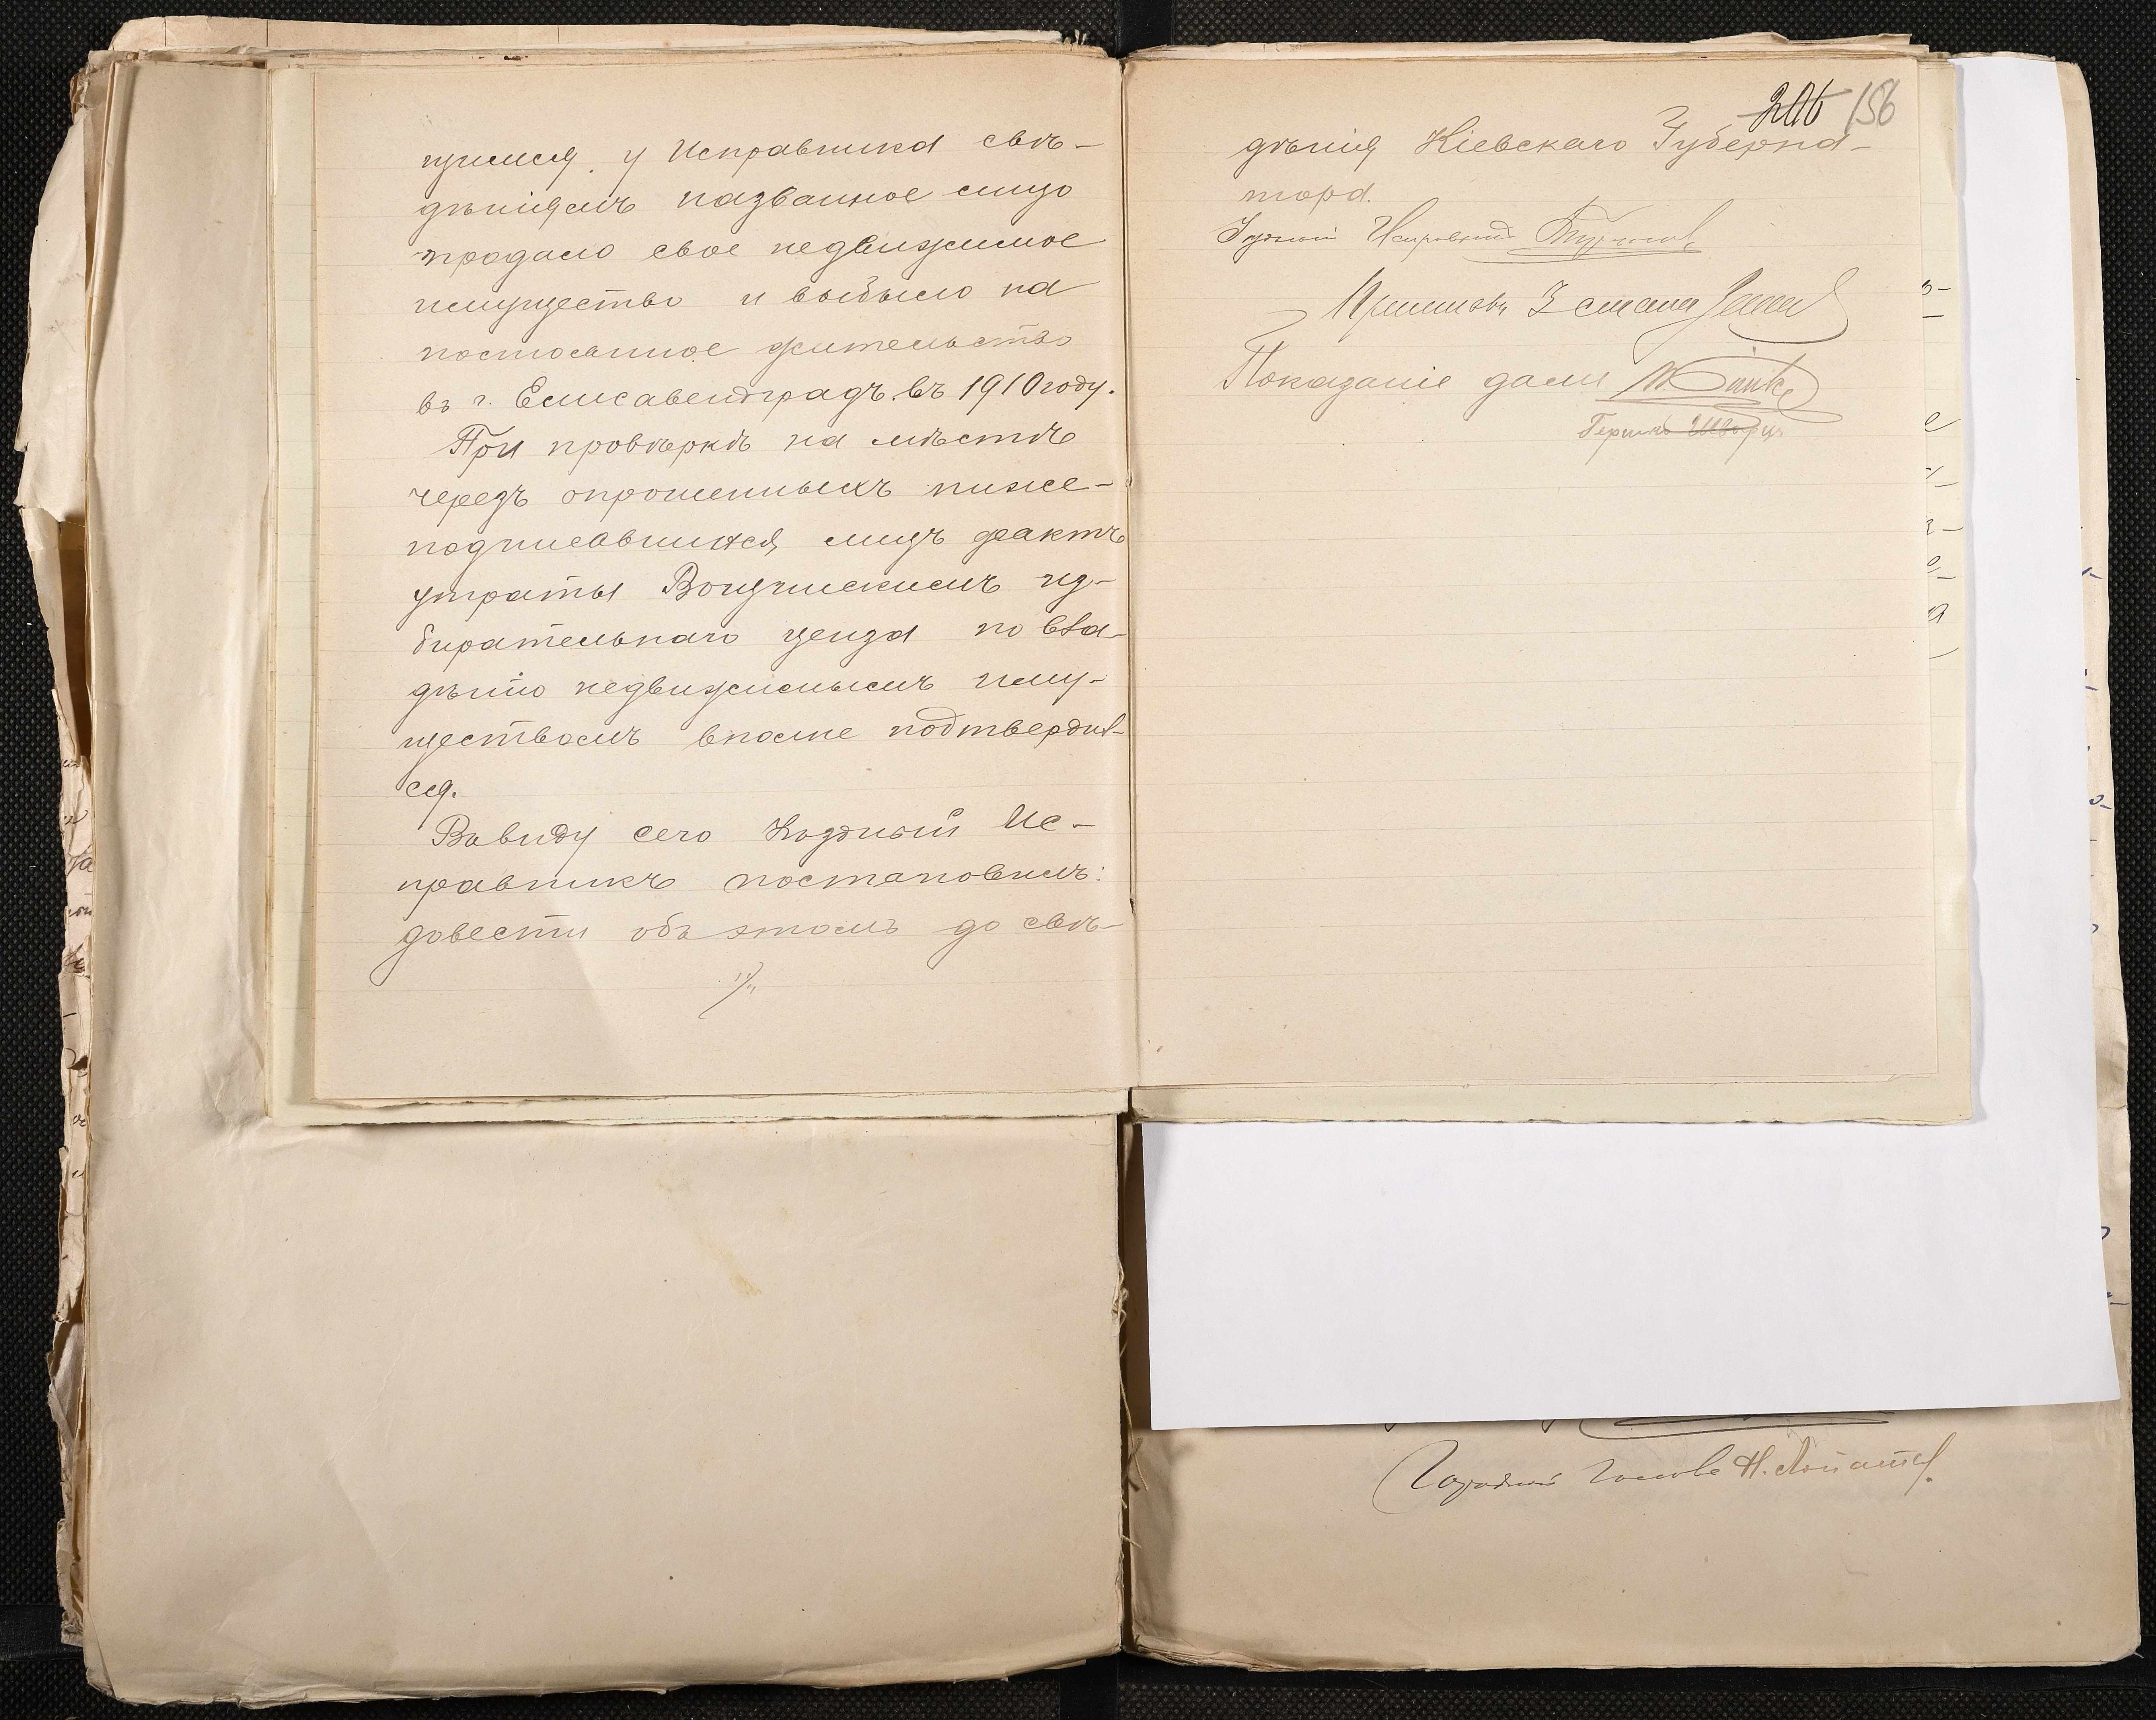 щимися у Исправника свѣ-
дѣніямъ названное лицо
продало свое недвижимое
имущество и выбыло на
постоянное жительство
въ г. Елисаветградъ въ 1910 году.
При провѣркѣ на мѣстѣ
черезъ опрошенныхъ ниже-
подписавшихся лицъ фактъ
утраты Вощинскимъ из-
бирательнаго ценза по вла-
дѣнію недвижимымъ иму-
ществомъ вполне подтвердил-
ся.
Ввиду сего Уѣздный Ис-
правникъ постановилъ:
довести объ этомъ до свѣ-
156
дѣнія Кіевскаго Губерна-
тора.
Уѣздный Исправникъ
Приставъ 3 стана
Показаніе дали
Гершко Шварцъ
Городской Голова Н.